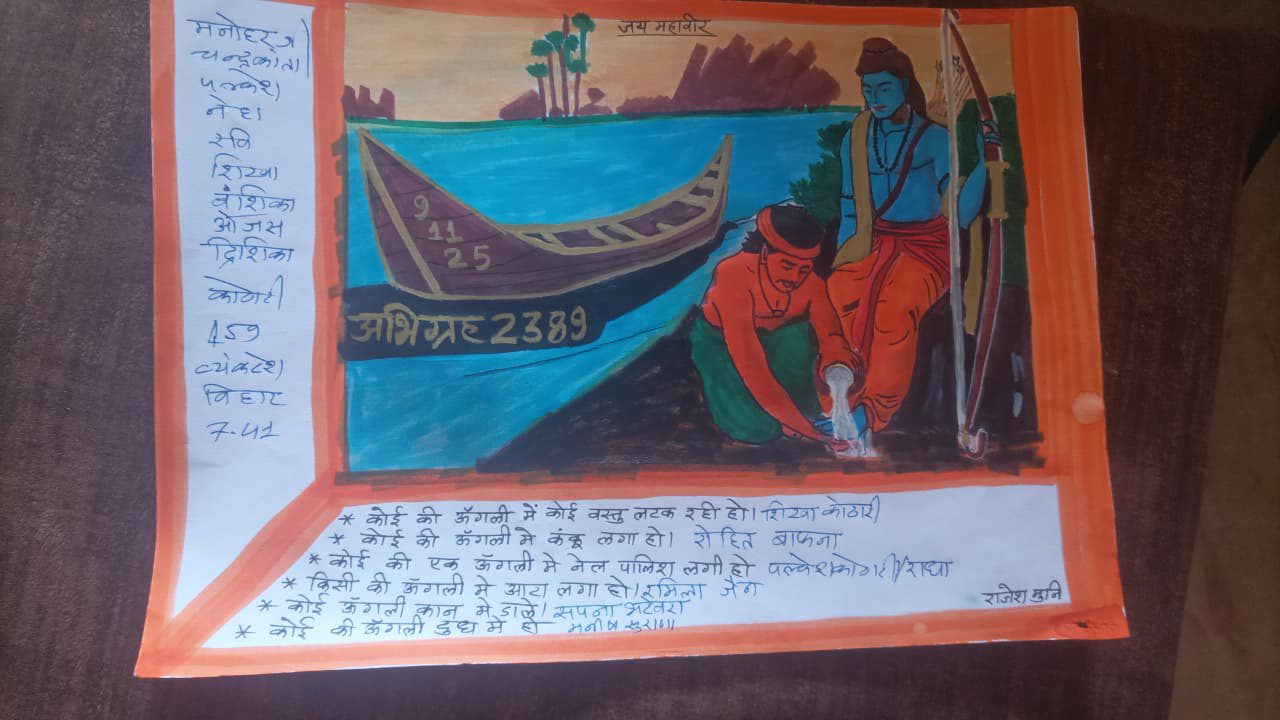 जय महावीर
मनोहर जी
चन्द्रकांता
पल्केश
नेहा
रवि
शिखा
वंशिका
ओजस
द्रिशिका
कोठारी
159
व्यंकटेश
विहार
7-41
9
11
25
अभिग्रह 2389
* कोई की ऊँगली में कोई वस्तु लटक रही हो। शिखा कोठारी
* कोई की ऊँगली मे कंकू लगा हो। रोहित बाफना
* कोई की एक ऊँगली मे नेल पालिश लगी हो पल्केश कोठारी/राधा
* किसी की ऊँगली मे आटा लगा हो। इमिला जैन
* कोई ऊँगली कान मे डाले। सपना भटेवरा
* कोई की ऊँगली दुध में हो मनीष सुराणा
राजेश मुनि